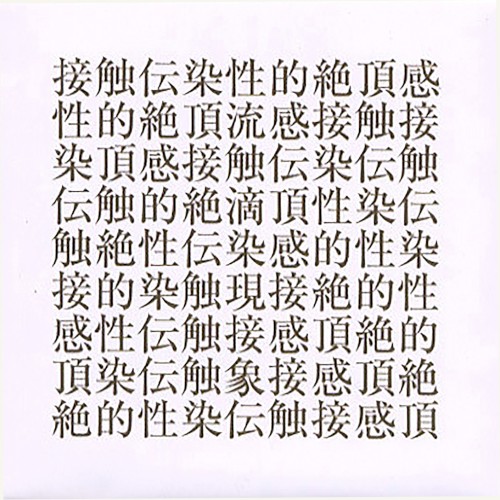 接触伝染性的絶頂感
性的絶頂流感接触接
染頂感接触伝染伝触
伝触的絶滴頂性染伝
触絶性伝染感的性染
接的染触現接絶的性
感性伝触接感頂絶的
頂染伝触象接感頂絶
絶的性染伝触接感頂